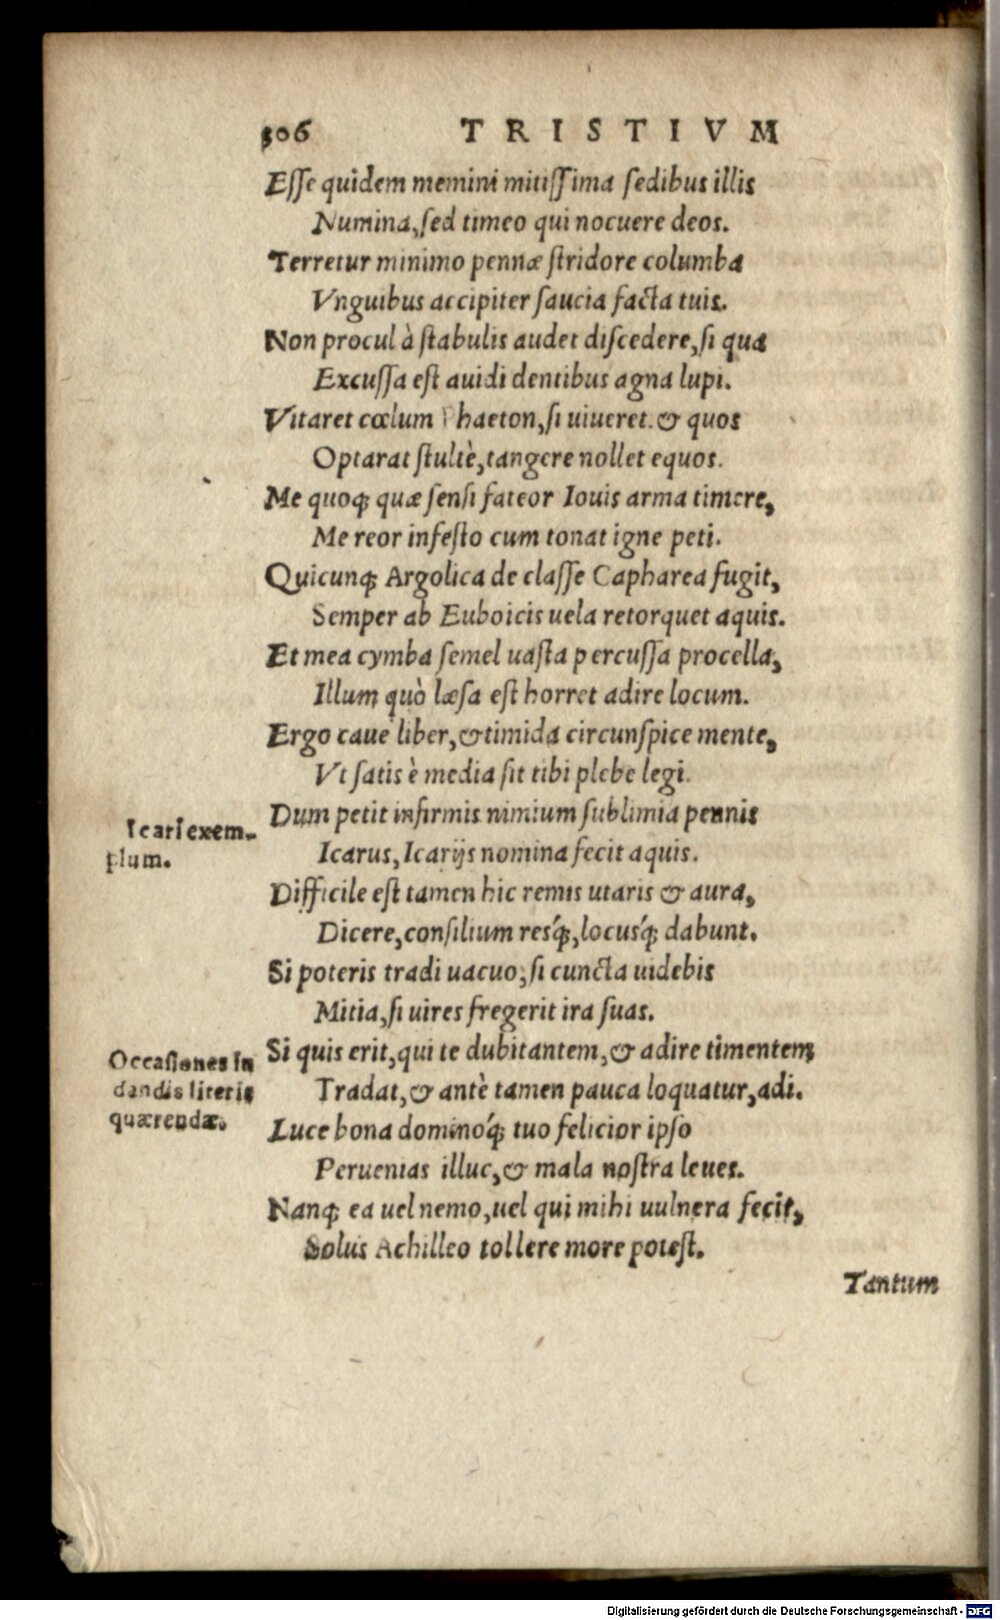 306 TRISTIVM
Esse quidem memini mitissima sedibus illis
Numina, sed timeo qui nocuere deos.
Terretur minimo pennæ stridore columba
Vnguibus accipiter saucia facta tuis.
Non procul à stabulis audet discedere, si qua
Excussa est auidi dentibus agna lupi.
Vitaret cœlum Phaeton, si uiueret. & quos
Optarat stultè, tangere nollet equos.
Me quoq; quæ sensi fateor Iouis arma timere,
Me reor infesto cum tonat igne peti.
Quicunq; Argolica de classe Capharea fugit,
Semper ab Euboicis uela retorquet aquis.
Et mea cymba semel uasta percussa procella,
Illum quò læsa est horret adire locum.
Ergo caue liber, & timida circunspice mente,
Vt satis è media sit tibi plebe legi.
Icari exem-
plum.
Dum petit infirmis nimium sublimia pennis
Icarus, Icarijs nomina fecit aquis.
Difficile est tamen hic remis utaris & aura,
Dicere, consilium resq́;, locusq́; dabunt.
Si poteris tradi uacuo, si cuncta uidebis
Mitia, si uires fregerit ira suas.
Occasiones in
dandis literis
quærendæ.
Si quis erit, qui te dubitantem, & adire timentem
Tradat, & antè tamen pauca loquatur, adi.
Luce bona dominoq́; tuo felicior ipso
Peruenias illuc, & mala nostra leues.
Nanq; ea uel nemo, uel qui mihi uulnera fecit,
Solus Achilleo tollere more potest.
Tantum
Digitalisierung gefördert durch die Deutsche Forschungsgemeinschaft - DFG